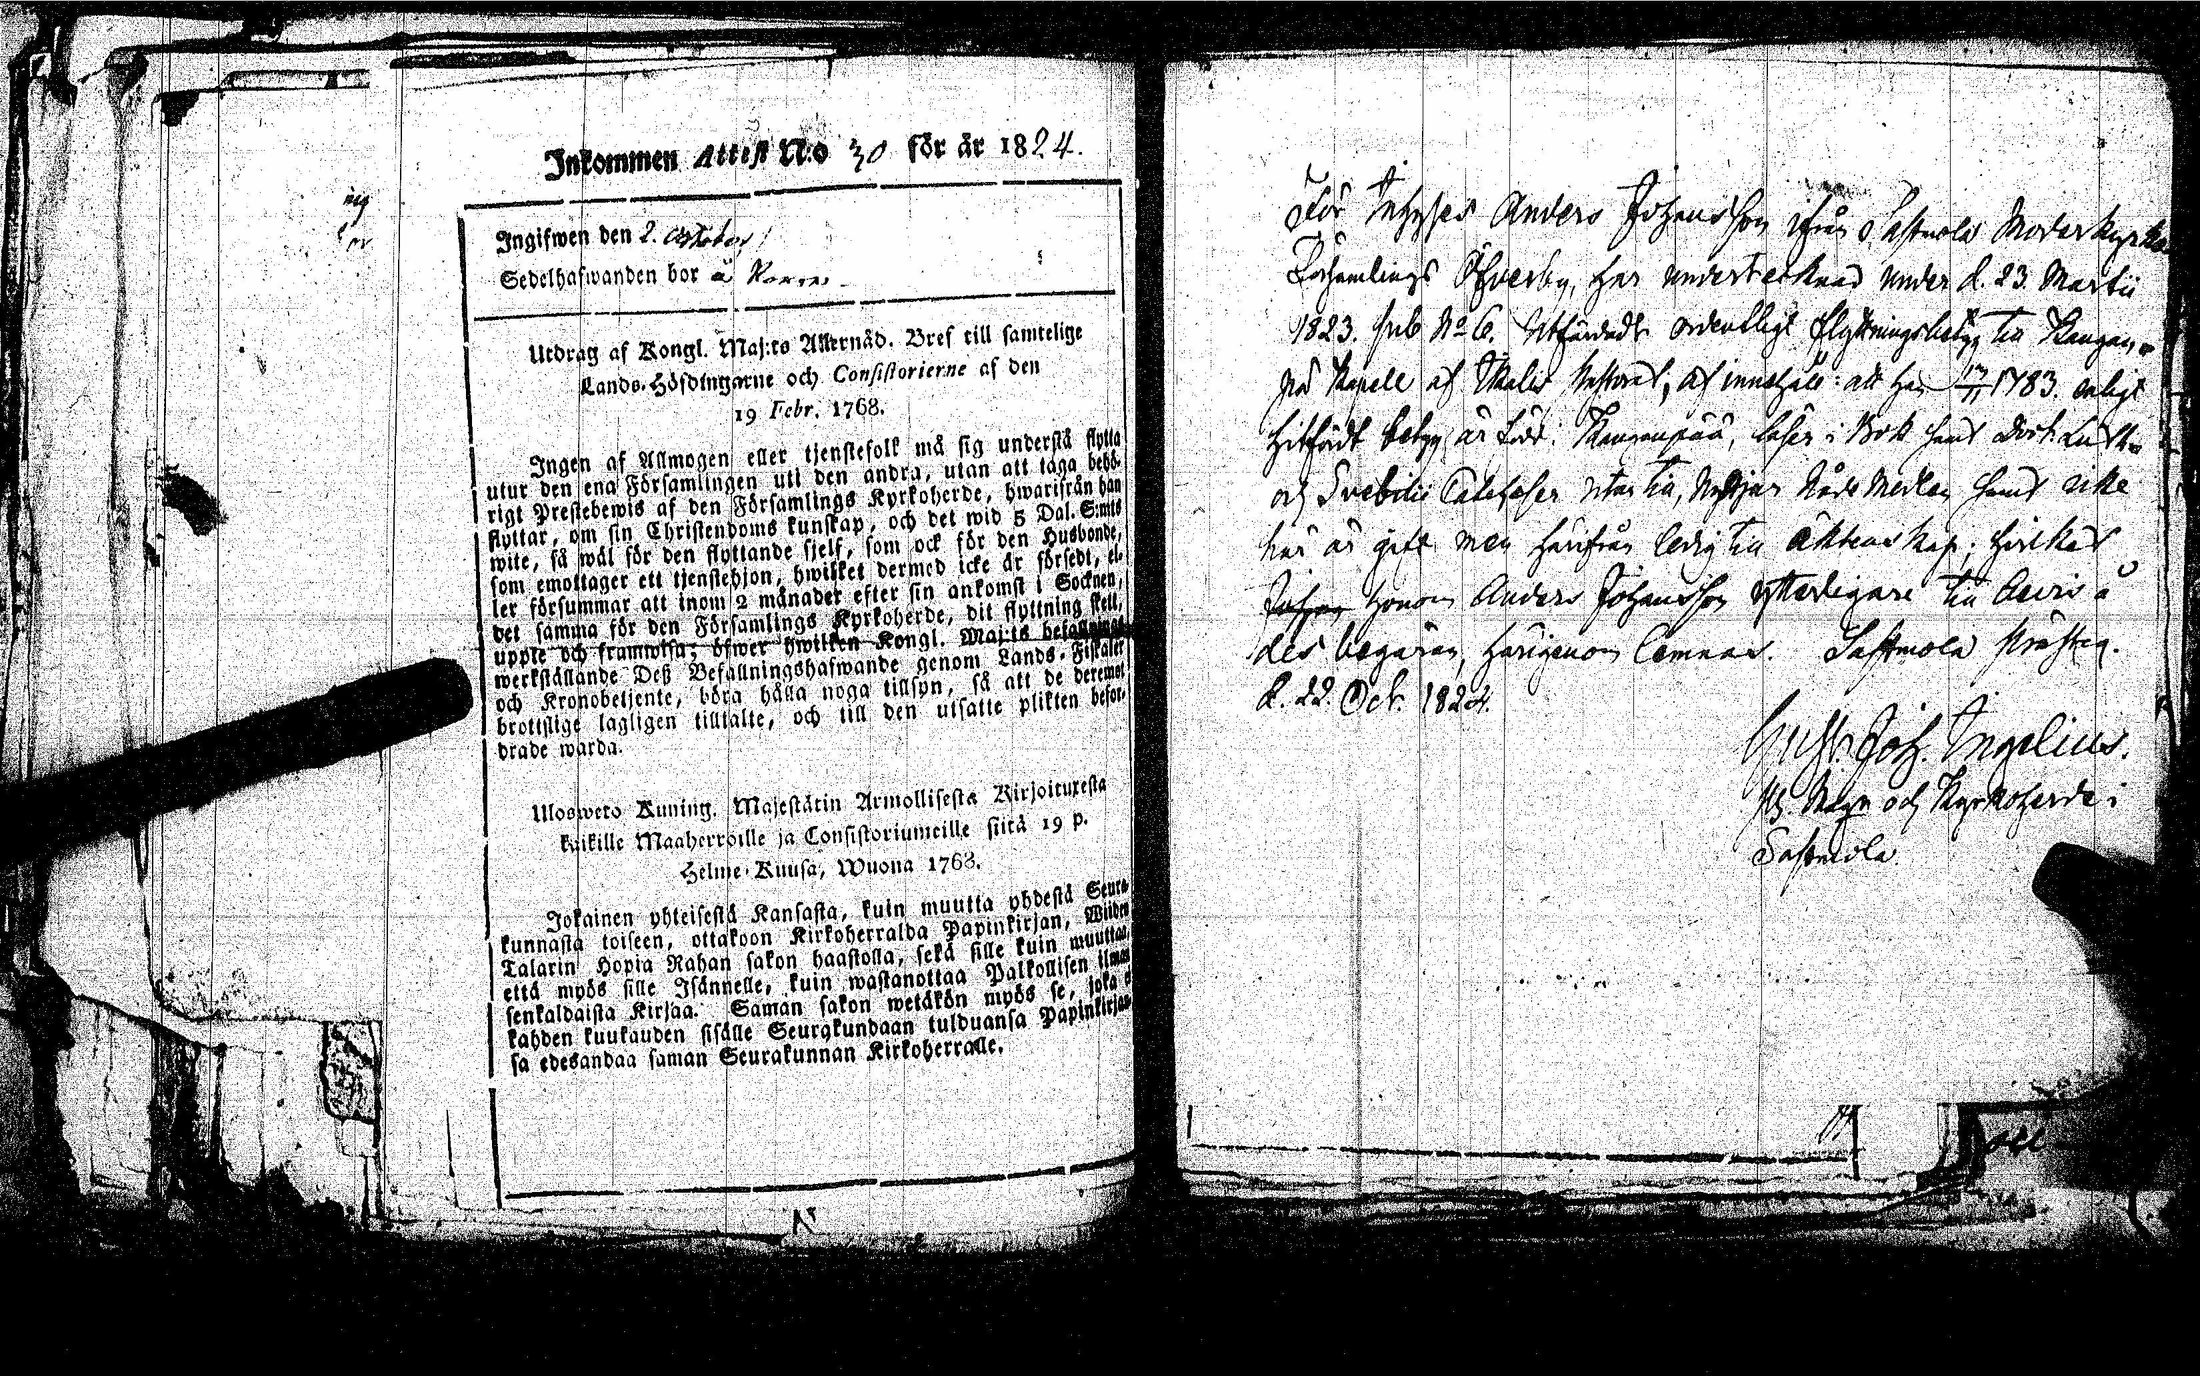 Inkommen Attest N:o 30 för år 1824.
Ingifwen den 2. October
Sedelhafwanden bor å
Utdrag af Kongl. Maj:ts Allernåd. Bref till samtelige
Lands-Höfdingarne och Consistorierne af den
19 Febr. 1768.
Ingen af Allmogen eller tjenstefolk må sig understå flytta
utur den ena Församlingen uti den andra, utan att taga behö-
rigt Prestebewis af den Församlings Kyrkoherde, hwarifrån han
flyttar, om sin Christendoms kunskap, och det wid 5 Dal. S:mts
wite, så wäl för den flyttande sjelf, som ock för den Husbonde,
som emottager ett tjenstehjon, hwilket dermed icke är försedt, el-
ler försummar att inom 2 månader efter sin ankomst i Socknen,
det samma för den Församlings Kyrkoherde, dit flyttning skett,
uppte och framwisa; öfwer hwilken Kongl. Maj:ts befallnings
werkställande Deß Befallningshafwande genom Lands-Fiskaler
och Kronobetjente, böra hålla noga tillsyn, så att de deremot
brottslige lagligen tilltalte, och till den utsatte plikten befor-
drade warda.
Ulosweto Kuning. Majestätin Armollisesta Kirjoituxesta
kaikille Maaherroille ja Consistoriumeille siitä 19 p.
Helme-Kuusa, Wuona 1768.
Jokainen yhteisestä Kansasta, kuin muutta yhdestä Seura-
kunnasta toiseen, ottakoon Kirkoherralda Papinkirjan, Wiiden
Talarin Hopia Rahan sakon haastolla, sekä sille kuin muuttaa,
että myös sille Isännelle, kuin wastanottaa Palkollisen ilman
senkaldaista Kirjaa. Saman sakon wetäkön myös se, joka ei
kahden kuukauden sisälle Seurakundaan tulduansa Papinkirjan-
sa edesandaa saman Seurakunnan Kirkoherralle.
För Inhyses Anders Johansson ifrån Sastmola Moderkyrko
Församlings Öfverby, har undertecknad under d. 23. Martii
1823. sub No 6. utfärdadt ordentligt flyttningsbetyg till Kangan-
pä Kapell af Ikalis Pastorat, af innehåll: att han 1783. enligt
hitfördt betyg är född i Kanganpää, läser i Bok samt Doct. Luth.
och Svebilii Catcheser utan till, Nyttjar Nåde Medlen samt icke
här är gift men härifrån ledig till Äktenskap; hvilket
honom Anders Johansson ytterligare till bevis å
des begäran, härigenom lemnas. Sastmola Prästeg.
d. 22. Oct. 1824.
Gust. Joh. Ingelius.
och Kyrkoherde i
Sastmola